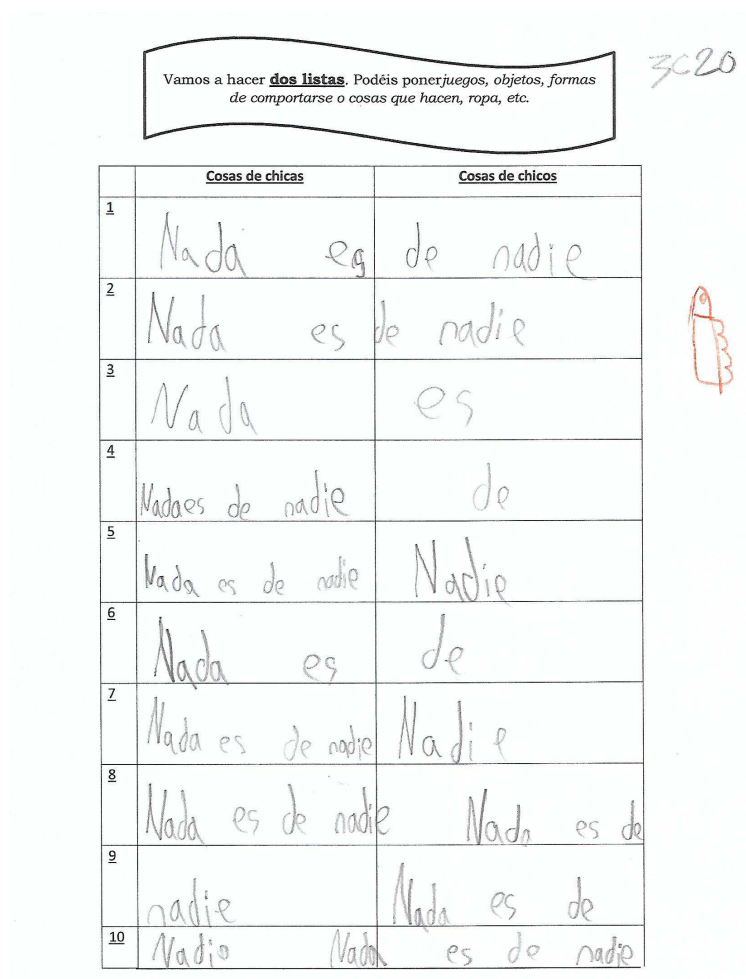 3C20
Vamos a hacer dos listas. Podéis ponerjuegos, objetos, formas
de comportarse o cosas que hacen, ropa, etc.
Cosas de chicas Cosas de chicos
1 Nada es de nadie
2 Nada es de nadie
3 Nada es
4 Nadaes de nadie de
5 Nada es de nadie Nadie
6 Nada es de
7 Nada es de nadie Nadie
8 Nada es de nadie Nada es de
9 nadie Nada es de
10 Nadie Nada es de nadie